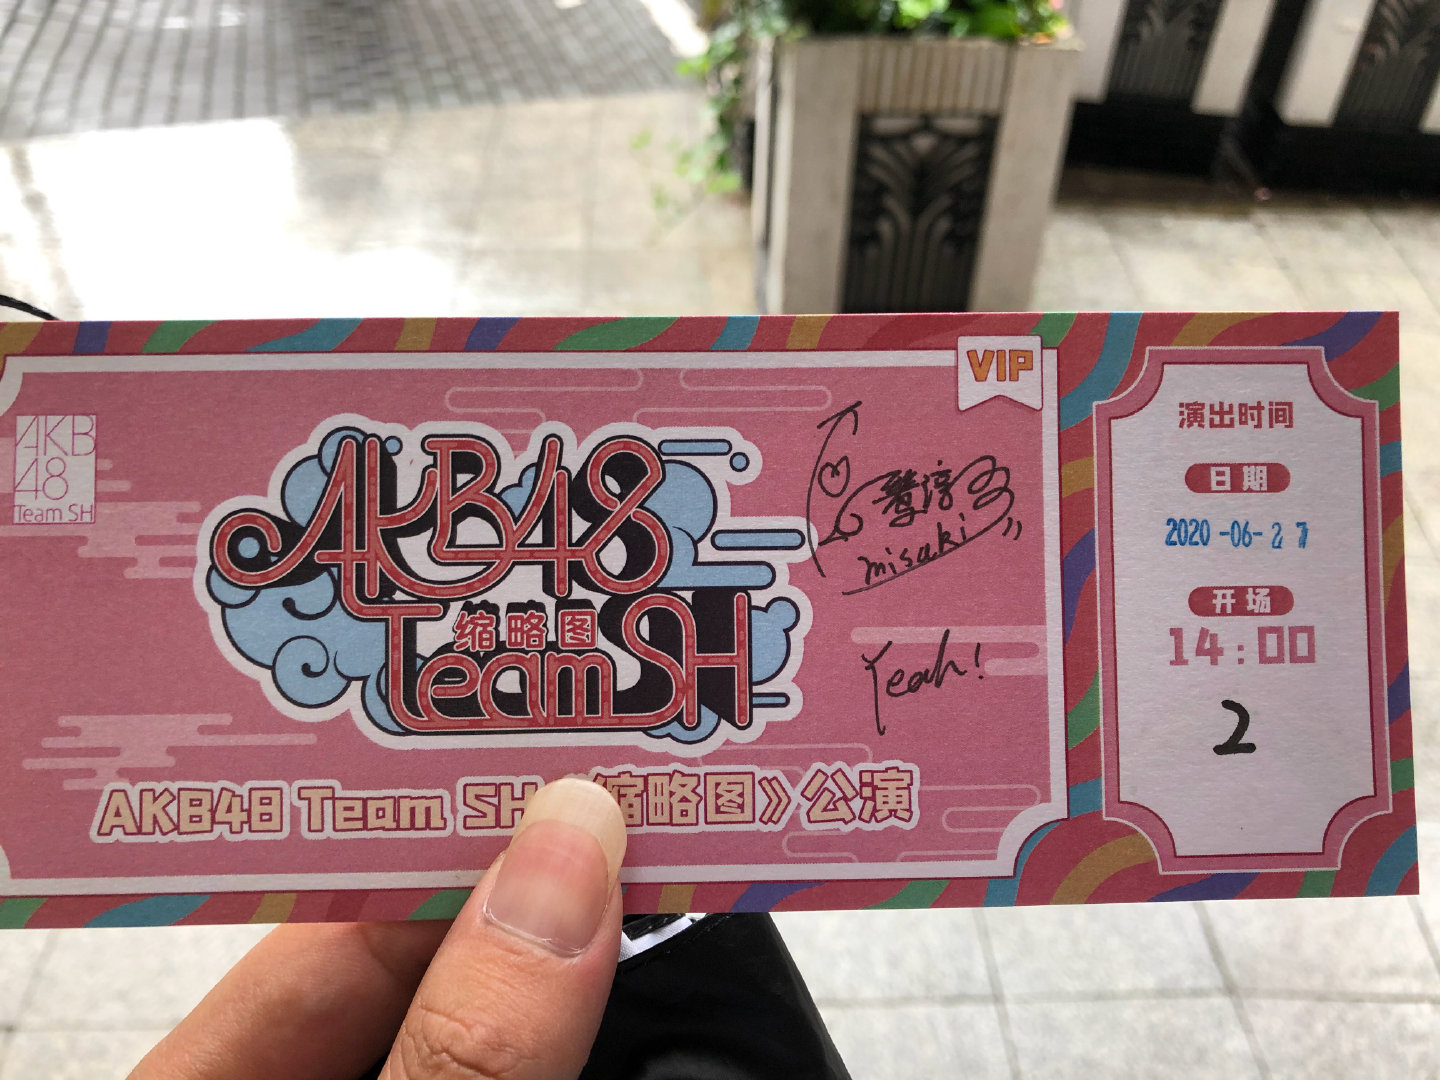 AKB
48
Team SH
AKB48
缩略图
TeamSH
VIP
misaki
Yeah!
AKB48 Team SH 缩略图》公演
演出时间
日期
2020-06-27
开场
14:00
2